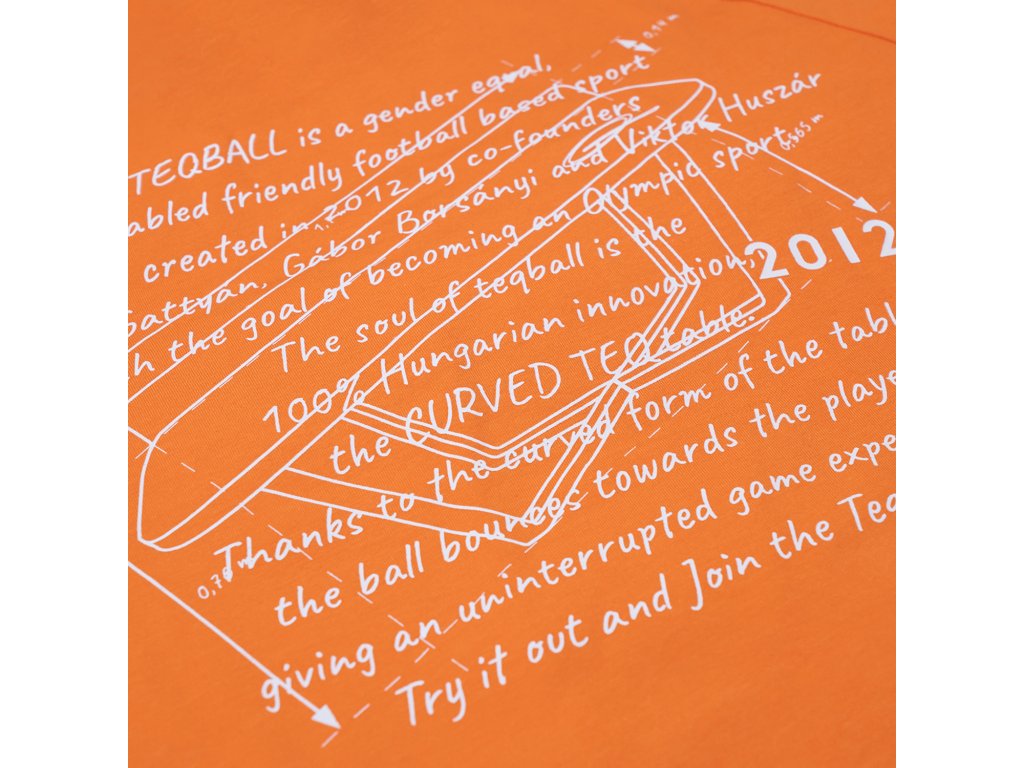 TEQBALL is a gender equal,
abled friendly football based sport
created in 2012 by co-founders
Gattyán, Gábor Borsányi and Viktor Huszár
the goal of becoming an Olympic sport.
The soul of teqball is the
100% Hungarian innovation,
the CURVED TEQ table.
Thanks to the curved form of the table
the ball bounces towards the
giving an uninterrupted game
Try it out and Join the Teq
2012
0,14 m